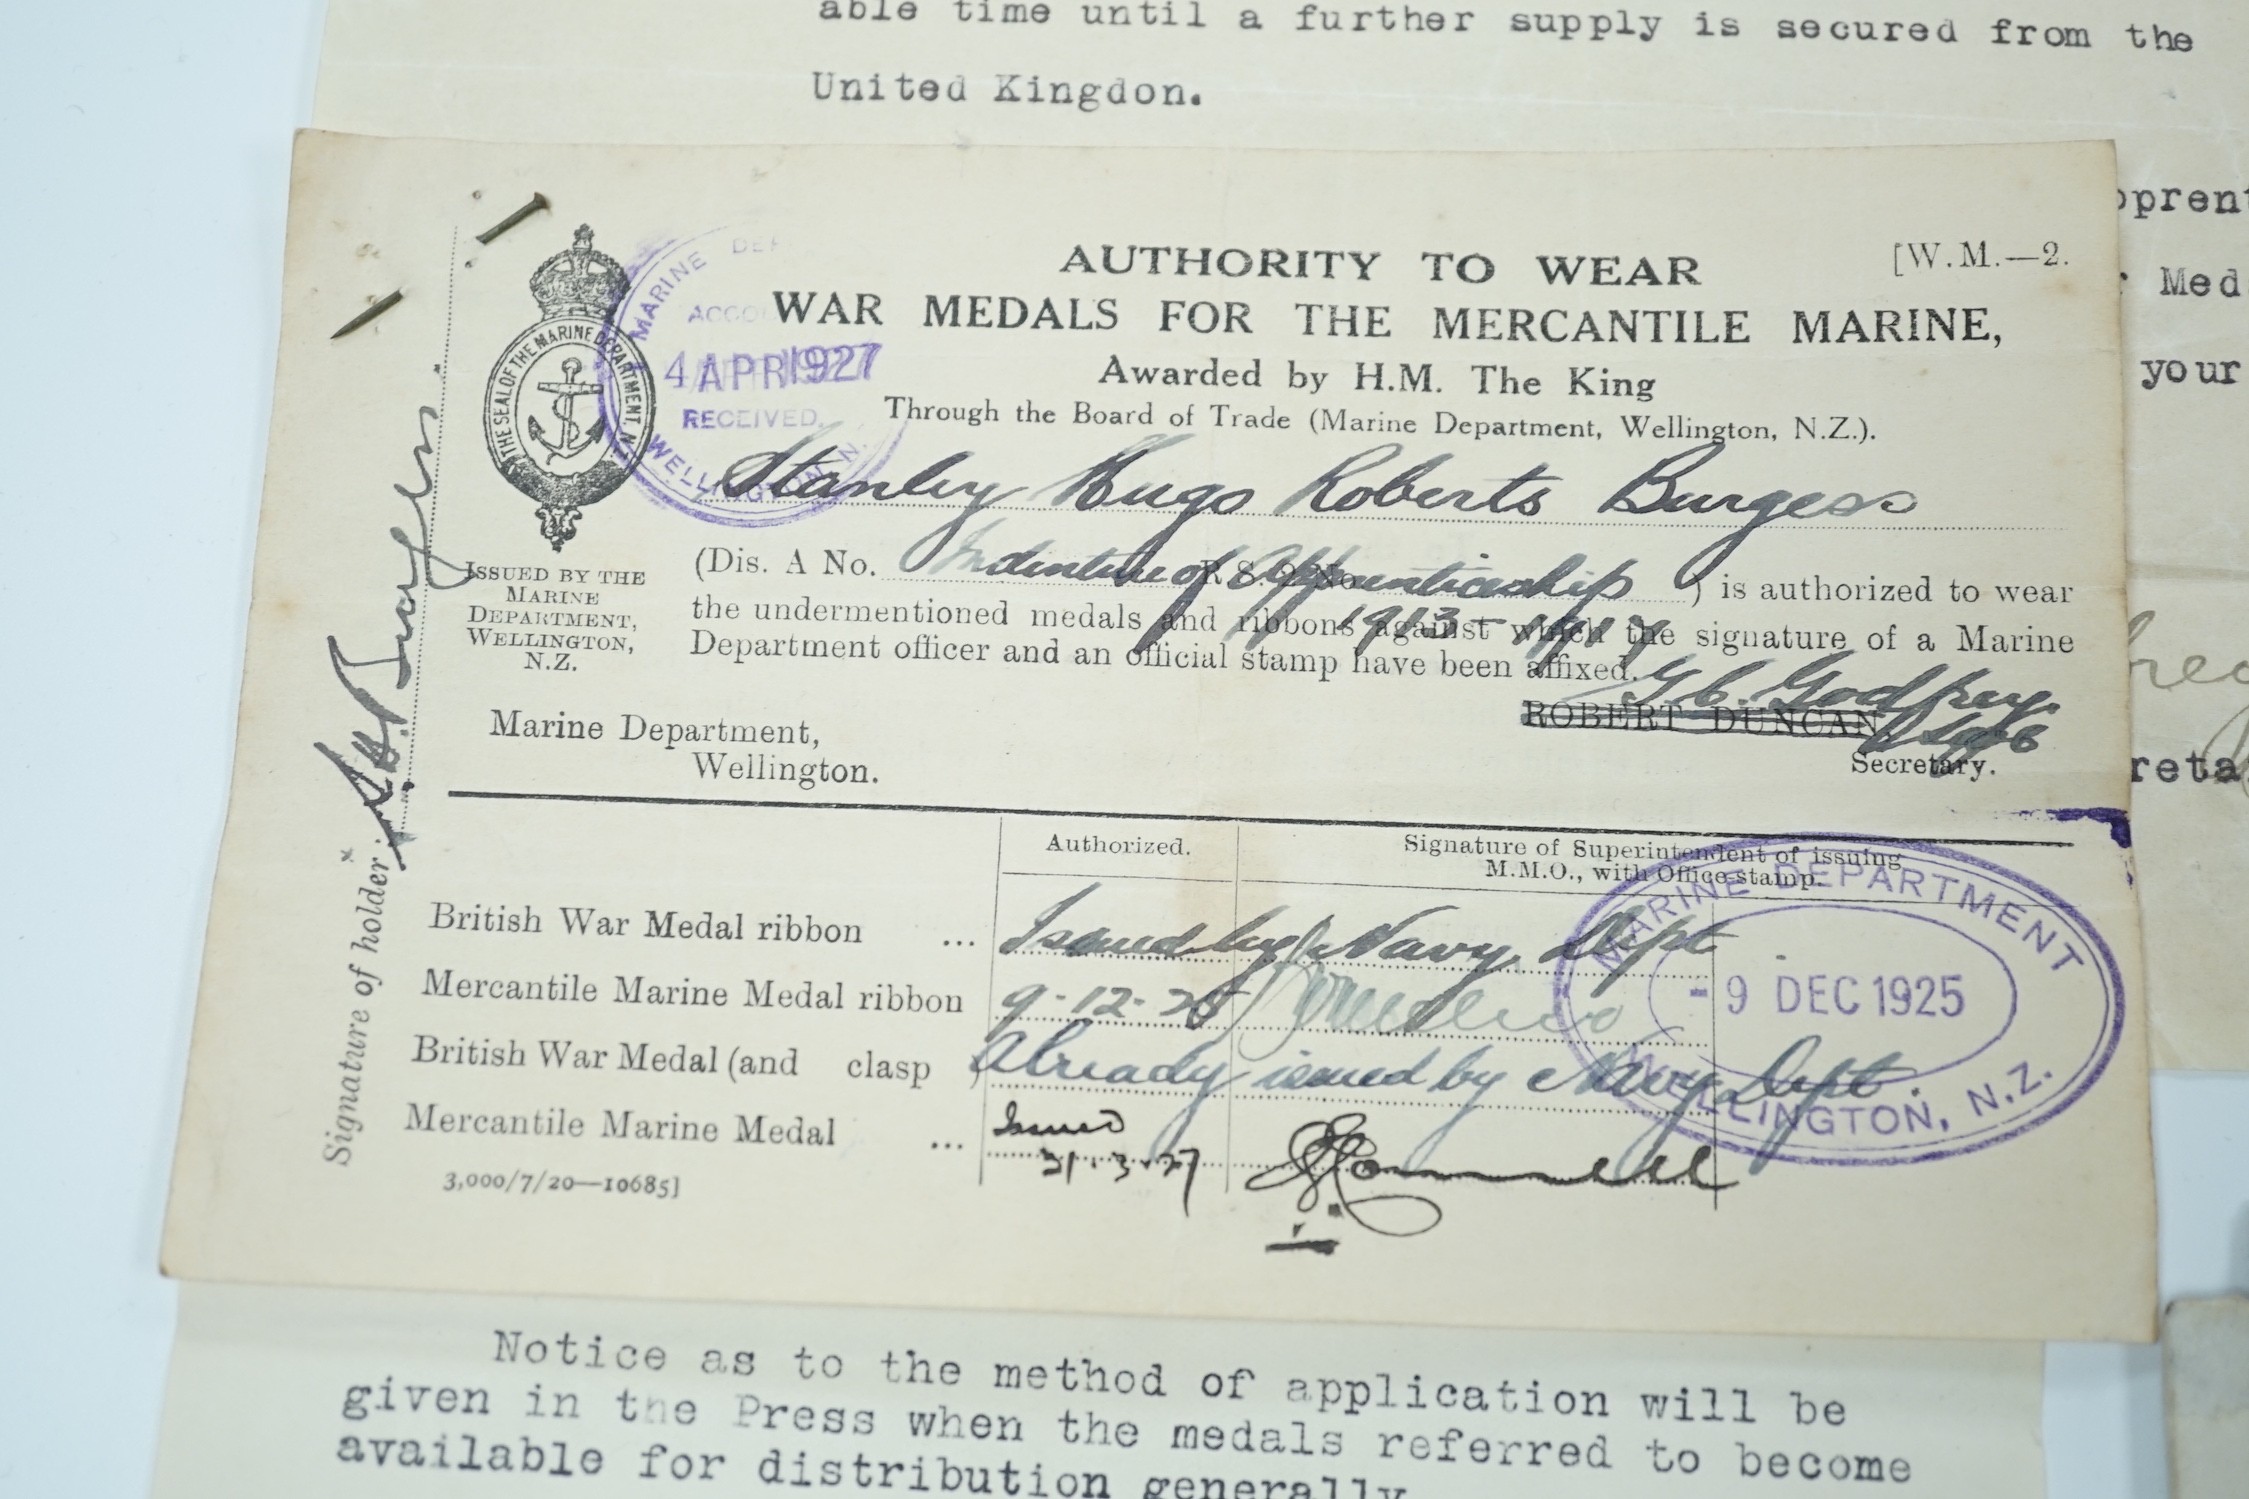 able time until a further supply is secured from the
United Kingdon.
pprent
Med
your
reta
[W.M.—2.
AUTHORITY TO WEAR
WAR MEDALS FOR THE MERCANTILE MARINE,
Awarded by H.M. The King
Through the Board of Trade (Marine Department, Wellington, N.Z.).
THE SEAL OF THE MARINE DEPARTMENT, N.Z.
MARINE DEP
ACCOU
4 APR 1927
RECEIVED.
WELLINGTON, N.
Stanley Hugo Roberts Burgess
ISSUED BY THE
MARINE
DEPARTMENT,
WELLINGTON,
N.Z.
(Dis. A No. Indenture of Apprenticeship R.S.2 No. ) is authorized to wear
1913-1917
the undermentioned medals and ribbons against which the signature of a Marine
Department officer and an official stamp have been affixed.
G. C. Godfrey.
ROBERT DUNCAN,
Secretary.
Marine Department,
Wellington.
Signature of holder:
S.H.R. Burgess
Authorized.
Signature of Superintendent of issuing
M.M.O., with Office-stamp.
British War Medal ribbon ... Issued by Navy Dept
Mercantile Marine Medal ribbon 9-12-25
British War Medal (and clasp ) Already issued by Navy Dept.
Mercantile Marine Medal ... Issued
31.3.27
MARINE DEPARTMENT
- 9 DEC 1925
WELLINGTON, N.Z.
3,000/7/20—10685]
Notice as to the method of application will be
given in the Press when the medals referred to become
available for distribution generally